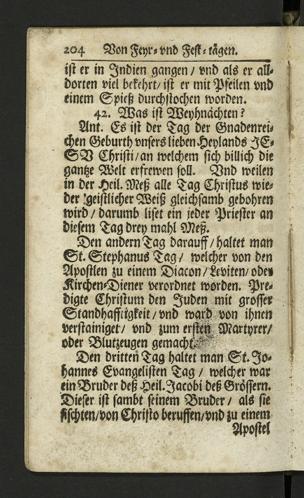 204 Von Feyr- vnd Fest-tägen.
ist er in Indien gangen / vnd als er all-
dorten viel bekehrt / ist er mit Pfeilen vnd
einem Spieß durchstochen worden.
42. Was ist Weyhnächten?
Ant. Es ist der Tag der Gnadenrei-
chen Geburth vnsers lieben Heylands JE-
SV Christi / an welchem sich billich die
gantze Welt erfrewen soll. Vnd weilen
in der Heil. Meß alle Tag Christus wie-
der geistlicher Weiß gleichsamb gebohren
wird / darumb liset ein jeder Priester an
diesem Tag drey mahl Meß.
Den andern Tag darauff / haltet man
St. Stephanus Tag / welcher von den
Apostlen zu einem Diacon / Leviten / oder
Kirchen-Diener verordnet worden. Pre-
digte Christum den Juden mit grosser
Standhafftigkeit / vnd ward von ihnen
verstainiget / vnd zum ersten Martyrer /
oder Blutzeugen gemacht.
Den dritten Tag haltet man St. Jo-
hannes Evangelisten Tag / welcher war
ein Bruder deß Heil. Jacobi deß Grössern.
Dieser ist sambt seinem Bruder / als sie
fischten / von Christo beruffen / vnd zu einem
Apostel